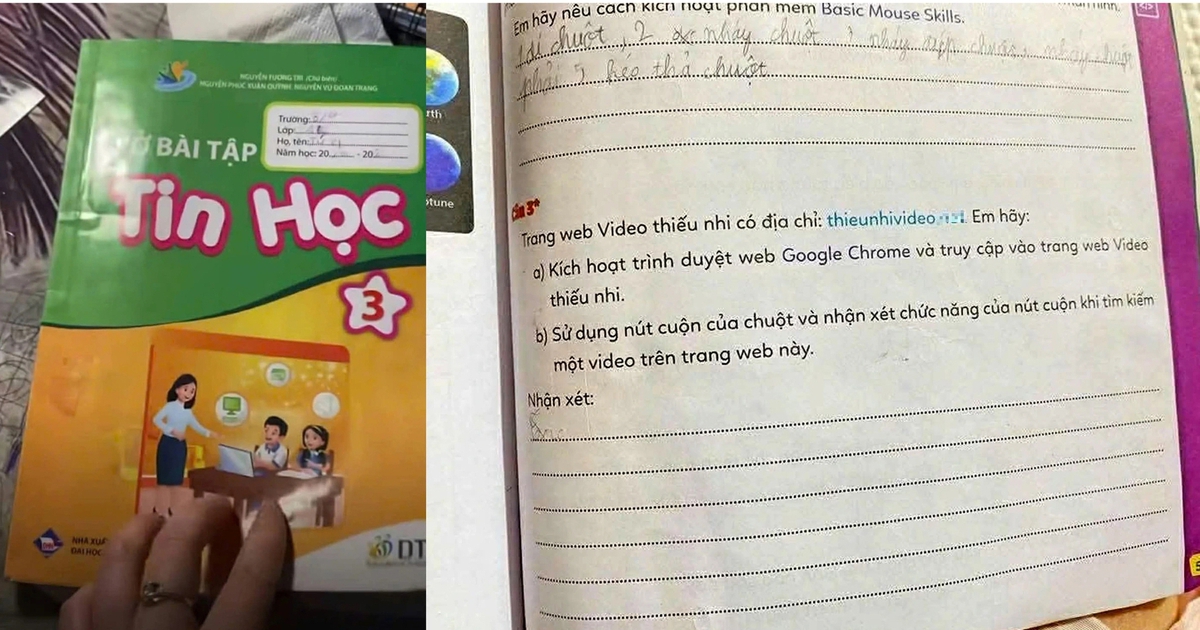 NGUYỄN TƯƠNG TRI (Chủ biên)
NGUYỄN PHÚC XUÂN QUỲNH, NGUYỄN VŨ ĐOAN TRANG
Trường:
Lớp:
Họ, tên:
Năm học: 20 - 20
BÀI TẬP
Tin Học
3
NHÀ XUẤ
ĐẠI HỌC
DT
rth
ptune
Em hãy nêu cách kích hoạt phần mềm Basic Mouse Skills.
chuột, 2 nháy chuột
phải 5 kéo thả chuột
Câu 3*
Trang web Video thiếu nhi có địa chỉ: thieunhivideo Em hãy:
a) Kích hoạt trình duyệt web Google Chrome và truy cập vào trang web Video
thiếu nhi.
b) Sử dụng nút cuộn của chuột và nhận xét chức năng của nút cuộn khi tìm kiếm
một video trên trang web này.
Nhận xét: